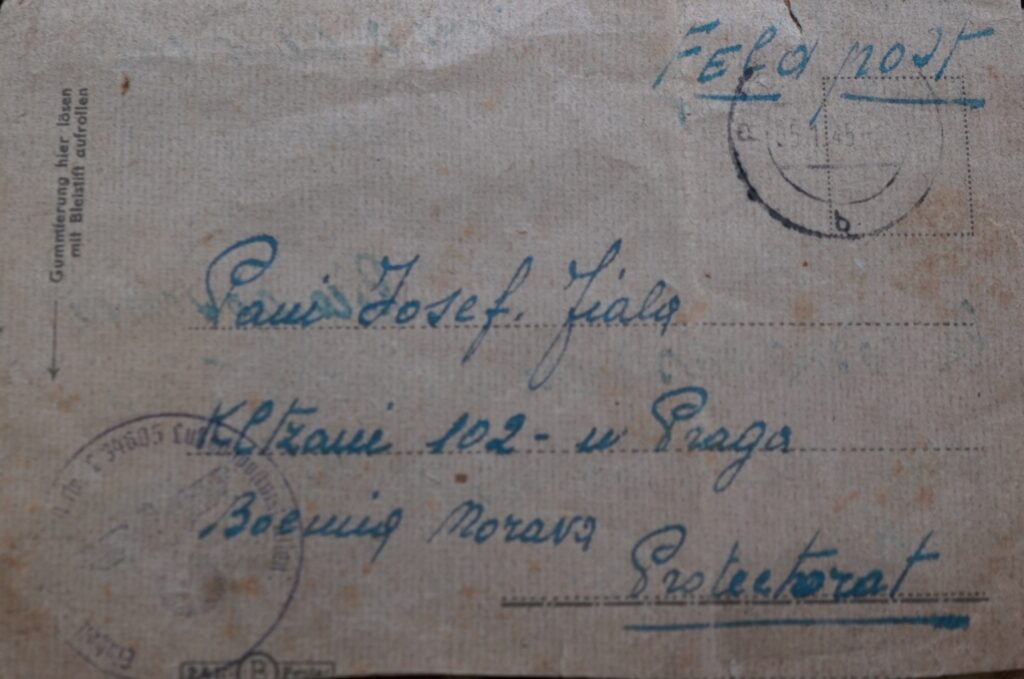 Feld post
Gummierung hier lösen
mit Bleistift aufrollen
5.1.45
b
Pani Josef. Fiala
Kltzani 102 - u Praga
Boemia Morava
Protectorat
L 34605